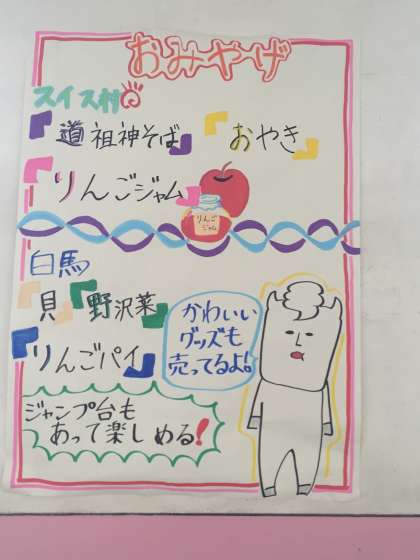 おみやげ
スイス村
「道祖神そば」 「おやき」
「りんごジャム」
りんご
ジャム
白馬
「貝」「野沢菜」
「りんごパイ」
かわいい
グッズも
売ってるよ!
ジャンプ台も
あって楽しめる!